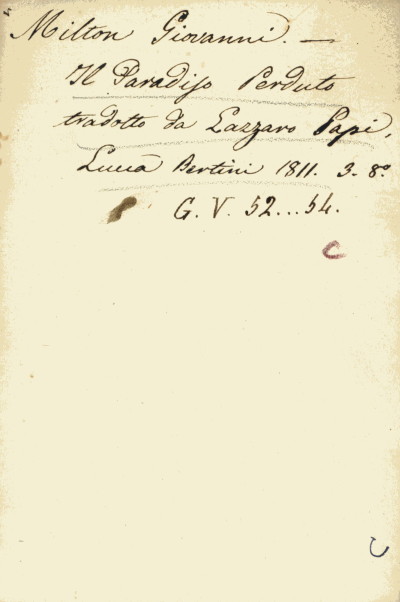 Milton Giovanni. —
Il Paradiso Perduto
tradotto da Lazzaro Papi,
Lucca Bertini 1811. 3. 8.º
G. V. 52...54.
C